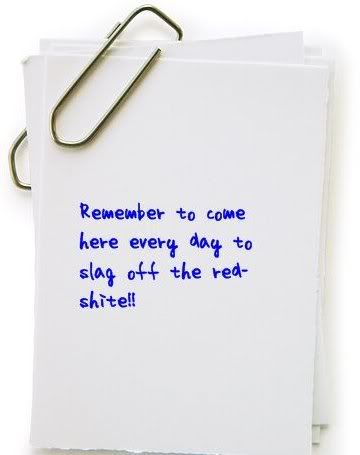 Remember to come
here every day to
slag off the red-
shite!!